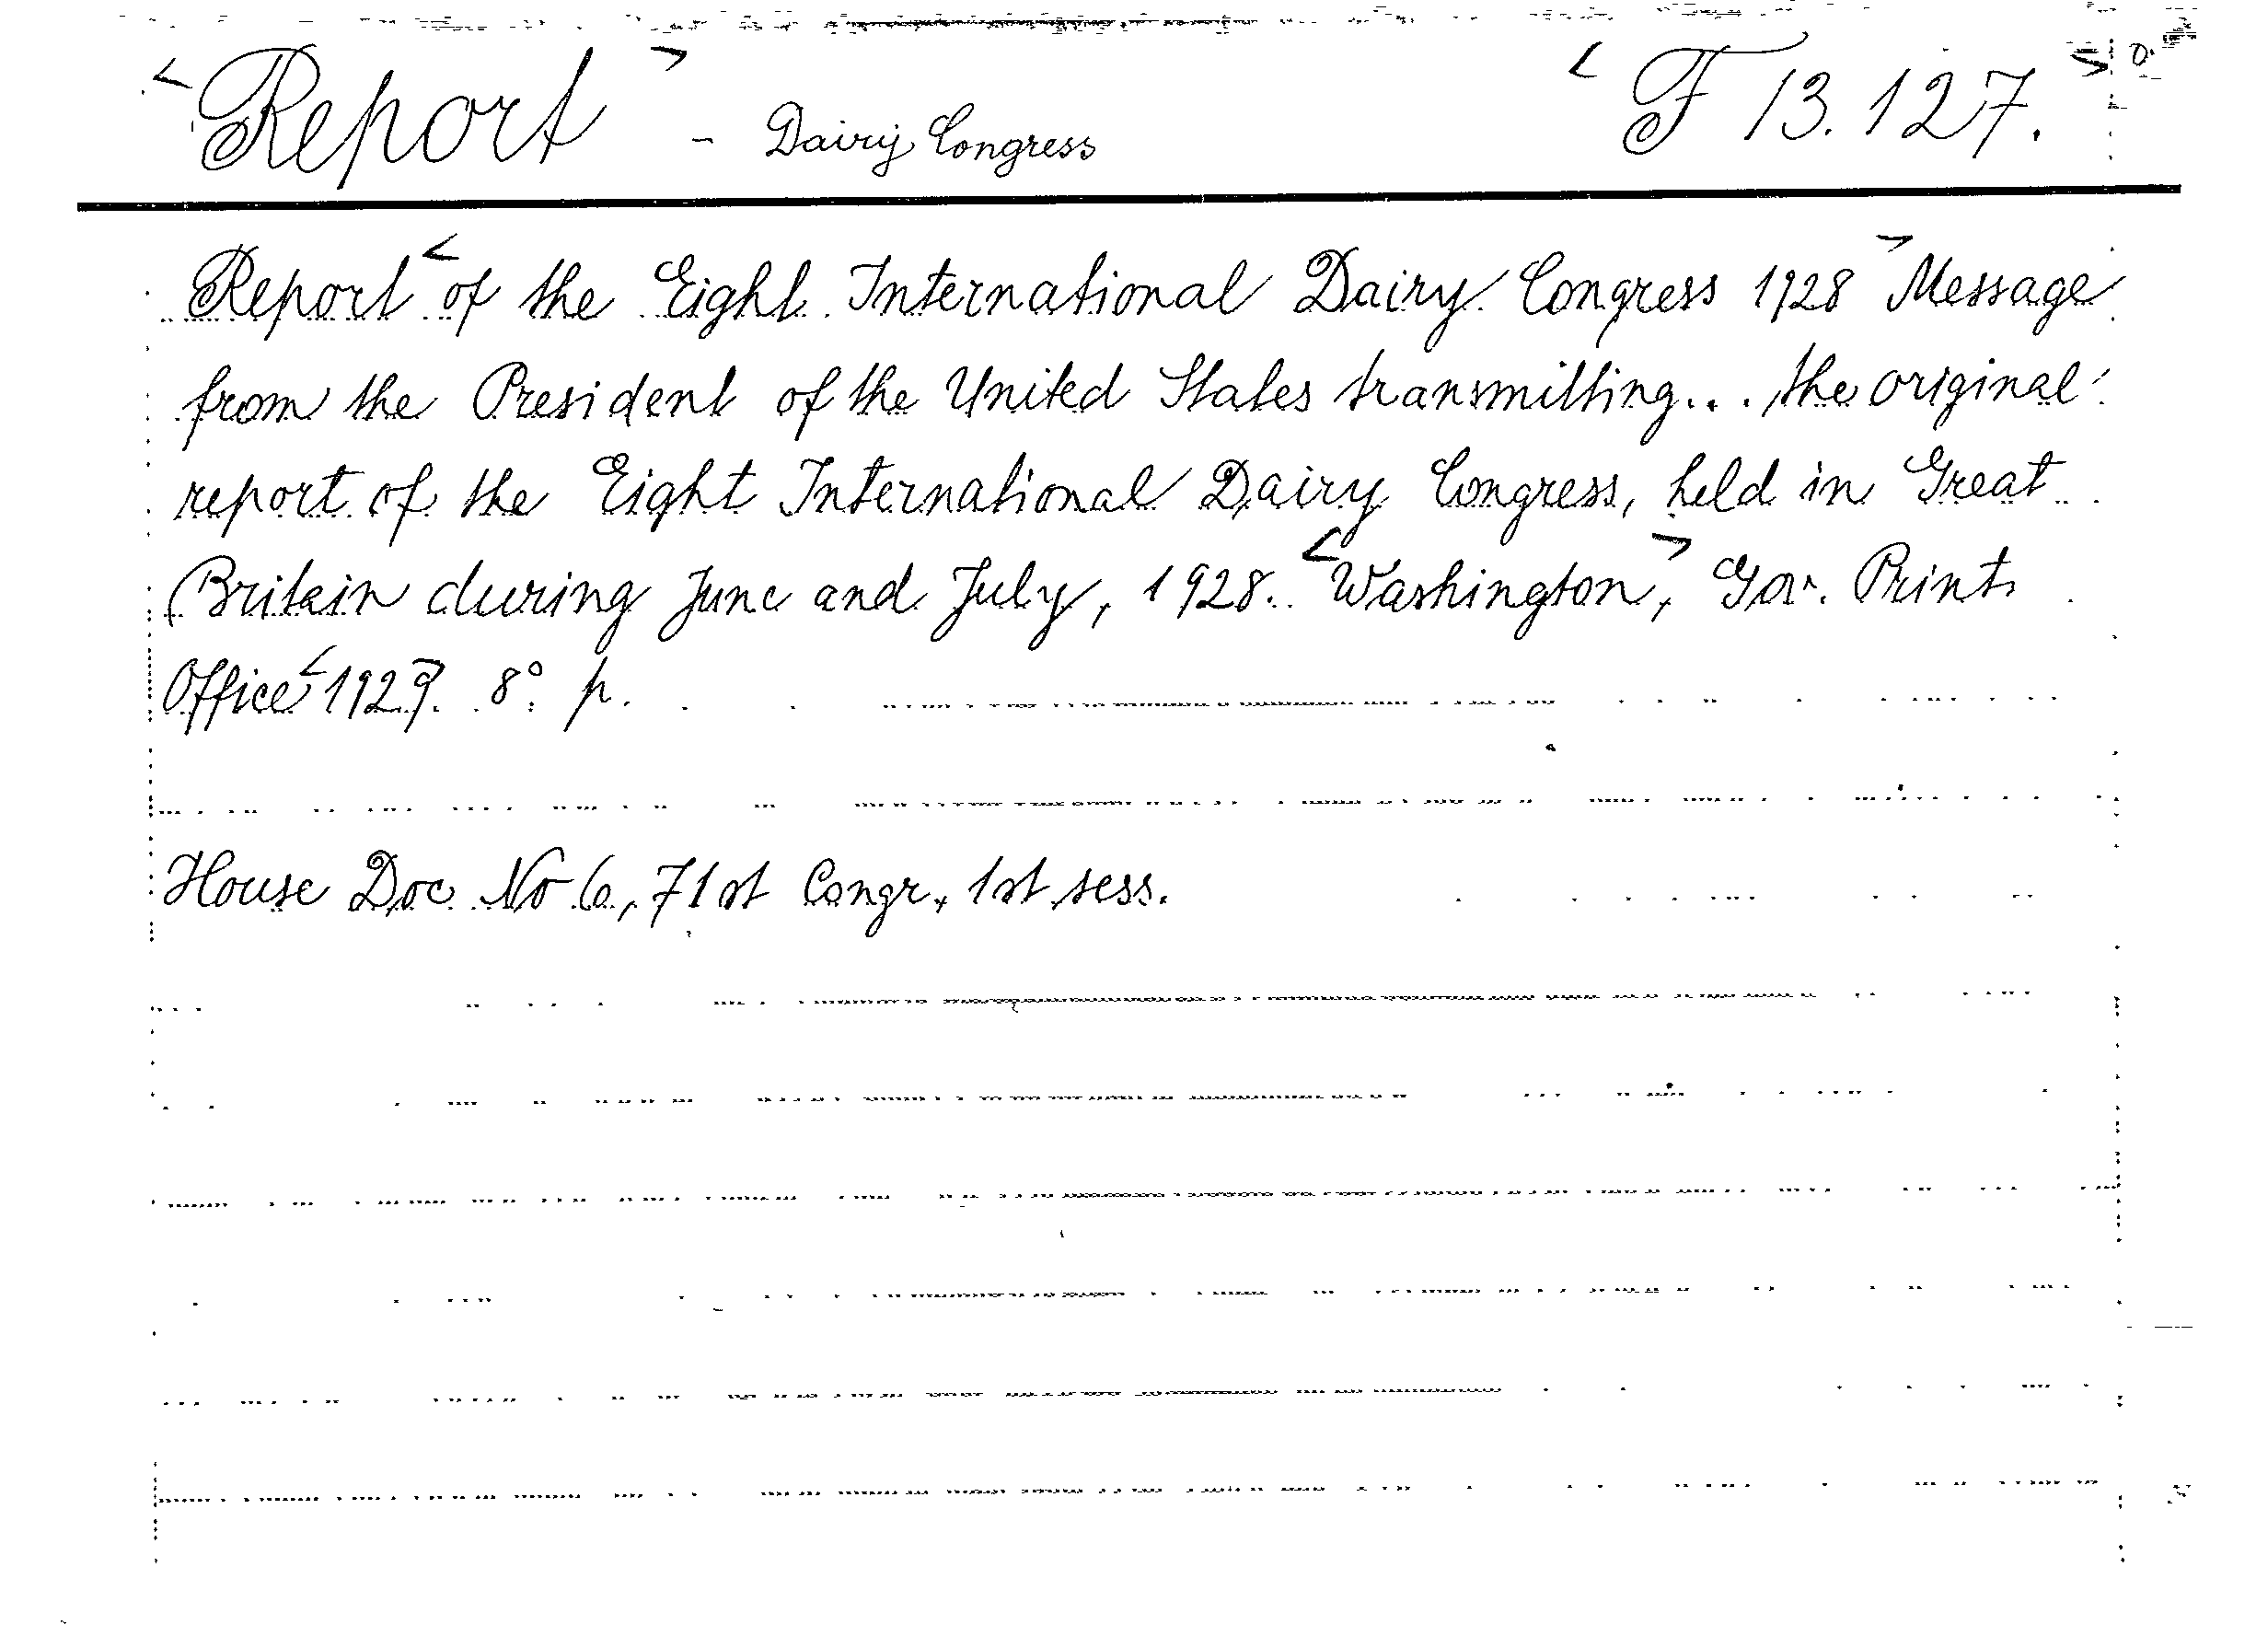 <Report> - Dairy Congress <F 13.127.>
Report <of the Eight International Dairy Congress 1928> Message
from the President of the United States transmitting... the original
report of the Eight International Dairy Congress, held in Great
Britain during June and July, 1928. <Washington,> Gov. Print
Office <1929>. 8° p.
House Doc No 6, 71st Congr, 1st sess.